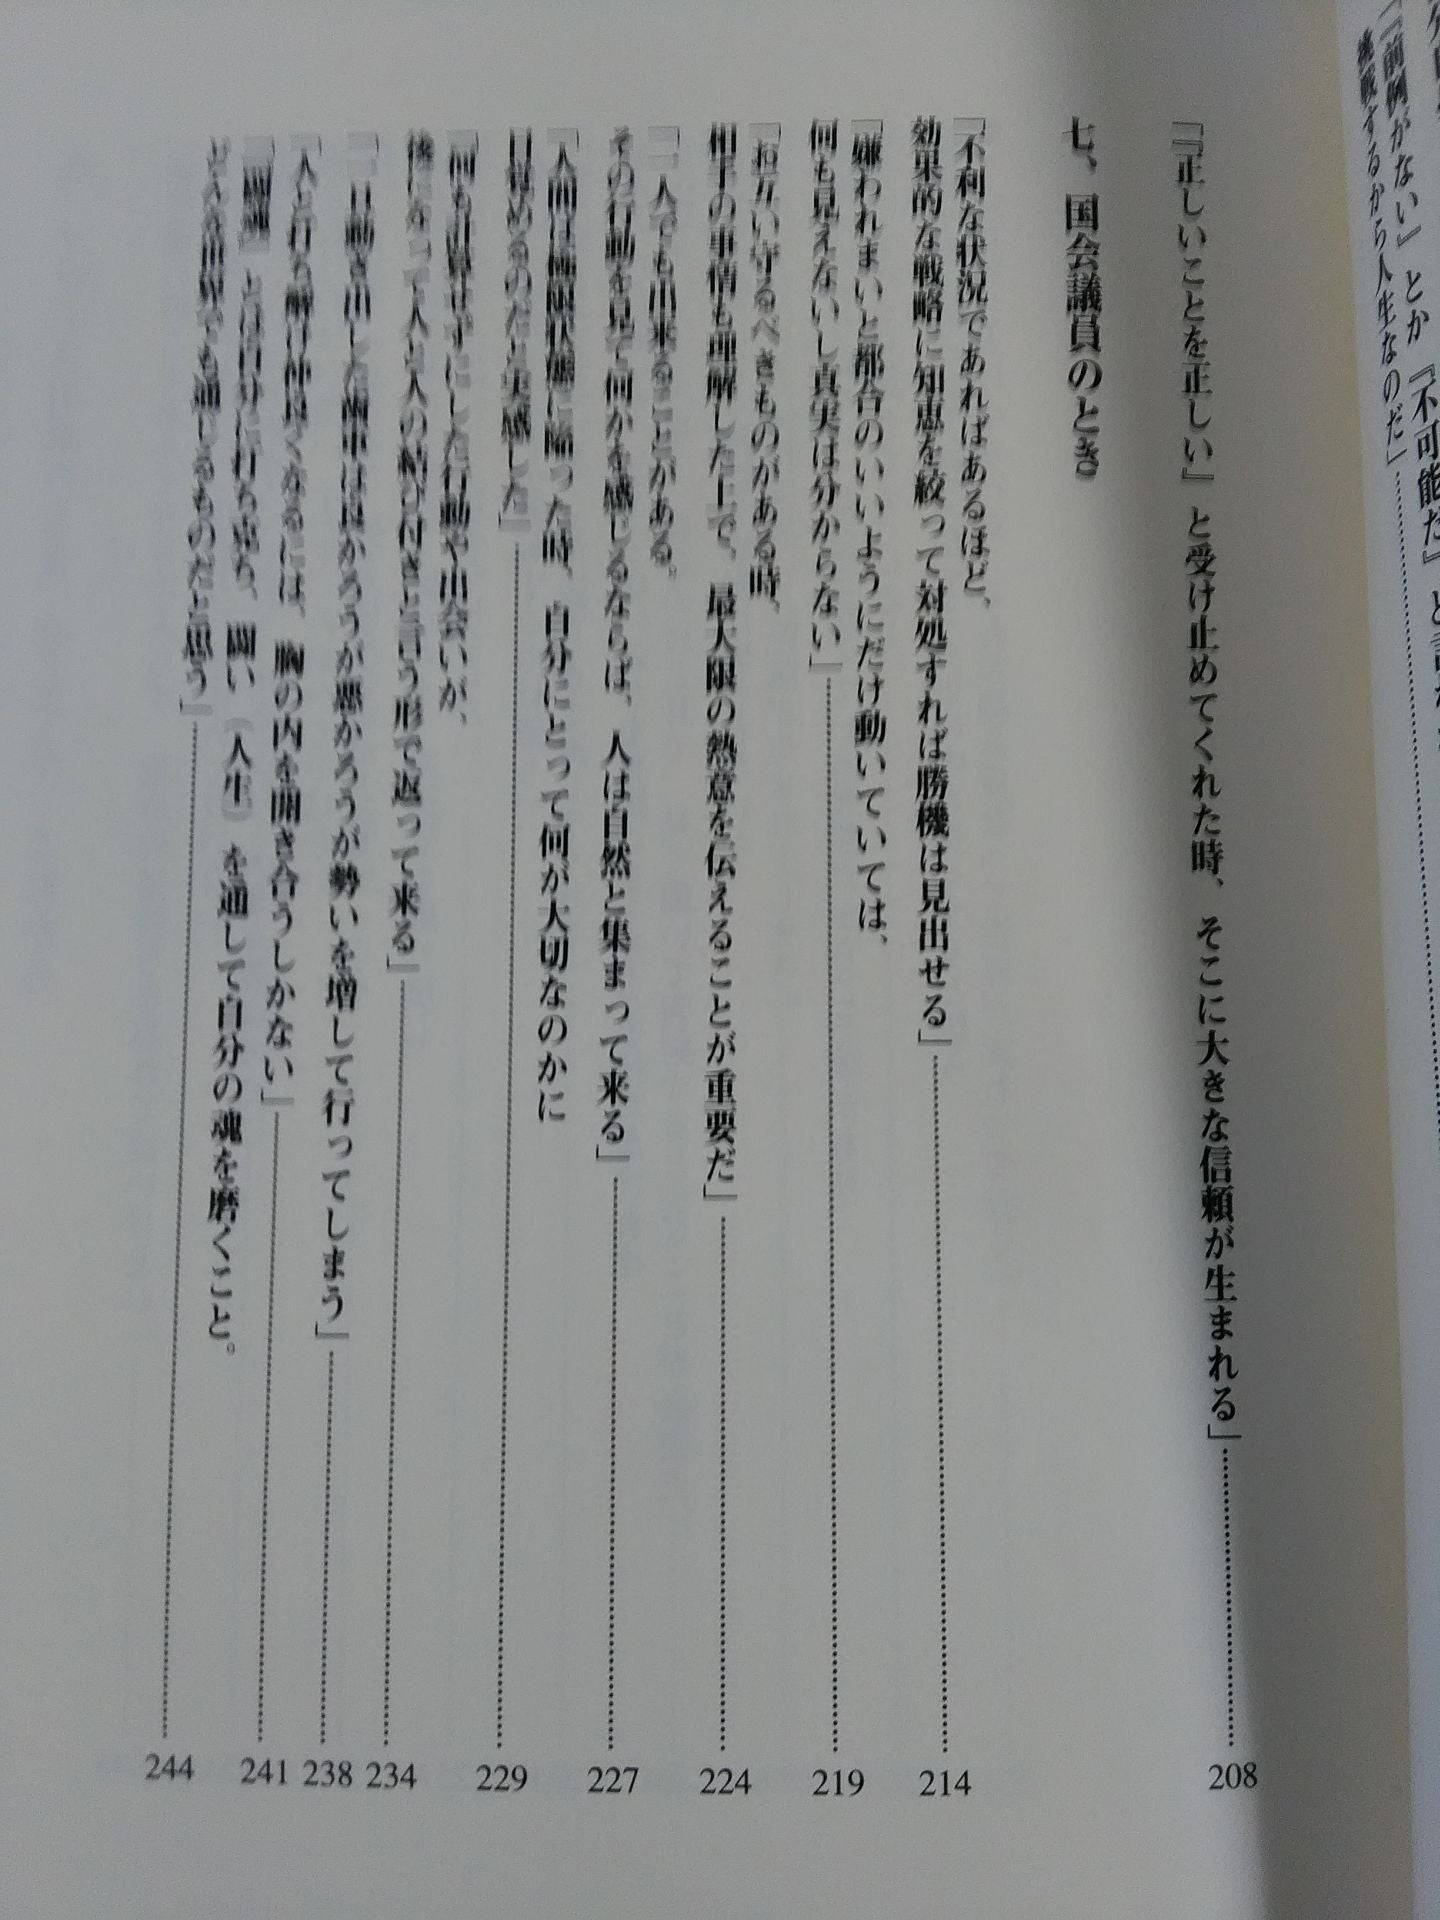 『前例がない』とか『不可能だ』と
挑戦するから人生なのだ」
「『正しいことを正しい』と受け止めてくれた時、そこに大きな信頼が生まれる」 208
七、国会議員のとき
「不利な状況であればあるほど、
効果的な戦略に知恵を絞って対処すれば勝機は見出せる」 214
「嫌われまいと都合のいいようにだけ動いていては、
何も見えないし真実は分からない」 219
「お互い守るべきものがある時、
相手の事情も理解した上で、最大限の熱意を伝えることが重要だ」 224
「一人でも出来ることがある。
その行動を見て何かを感じるならば、人は自然と集まって来る」 227
「人間は極限状態に陥った時、自分にとって何が大切なのかに
目覚めるのだと実感した」 229
「何も計算せずにした行動や出会いが、
後になって人と人の結び付きと言う形で返って来る」 234
「一旦動き出した歯車は良かろうが悪かろうが勢いを増して行ってしまう」 238
「人と打ち解け仲良くなるには、胸の内を開き合うしかない」 241
「『闘魂』とは自分に打ち克ち、闘い（人生）を通して自分の魂を磨くこと。
どんな世界でも通じるものだと思う」 244